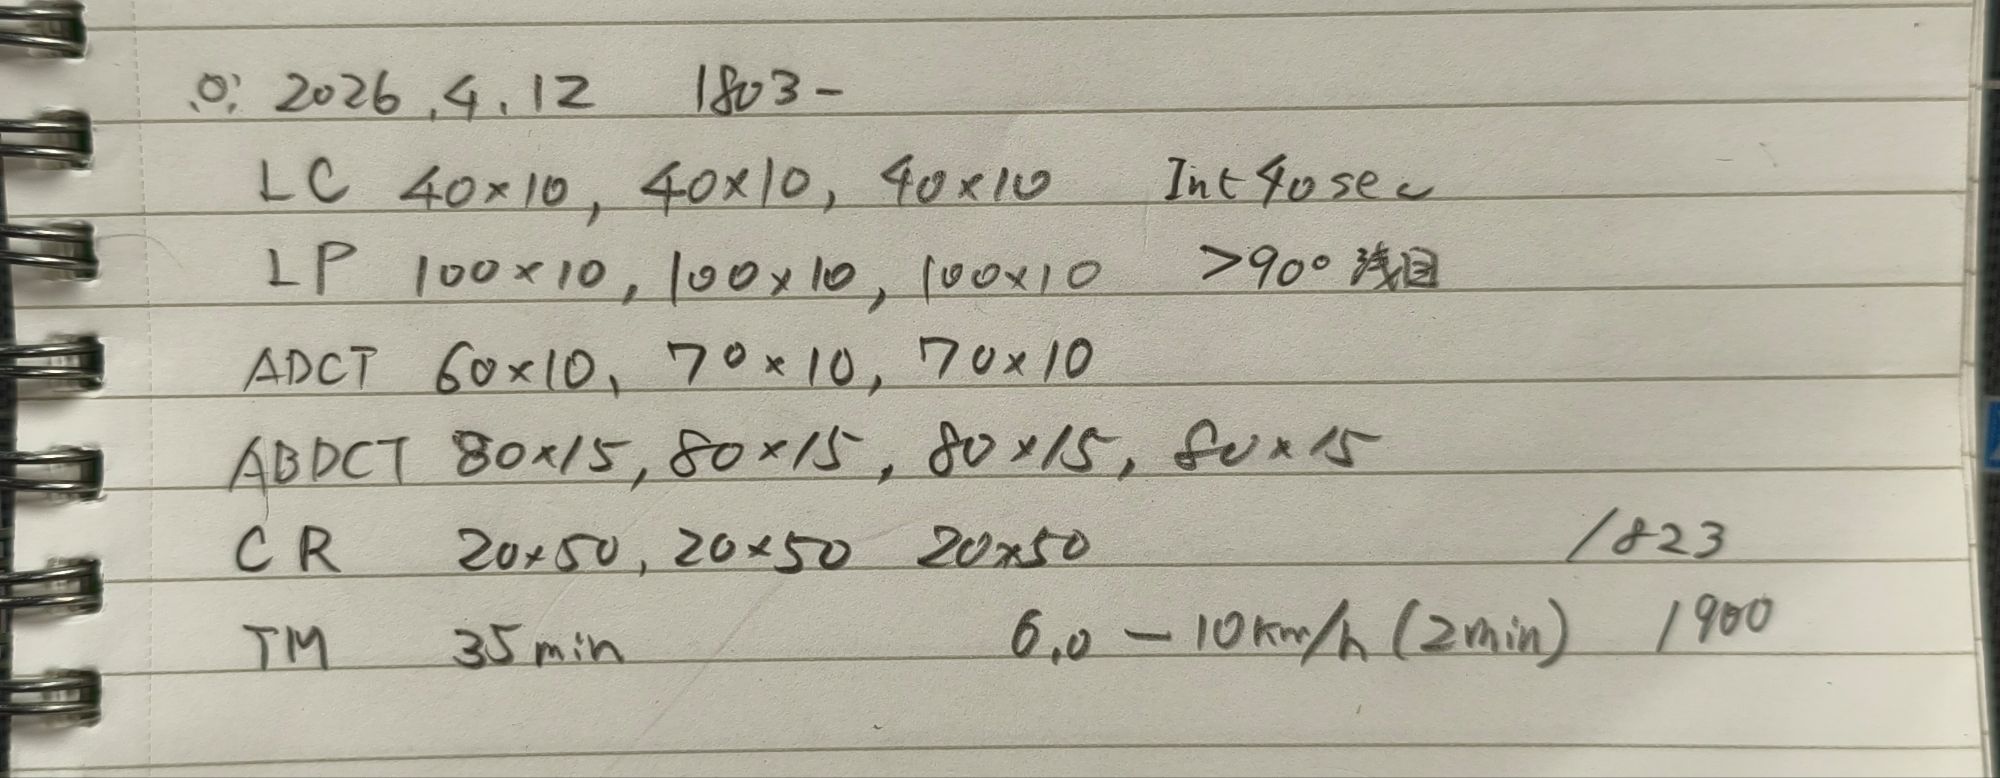 2026.4.12 1803-
LC 40×10, 40×10, 40×10 Int 40sec
LP 100×10, 100×10, 100×10 >90° 浅目
ADCT 60×10, 70×10, 70×10
ABDCT 80×15, 80×15, 80×15, 80×15
CR 20×50, 20×50 20×50 /823
TM 35min 6.0-10km/h (2min) 1900